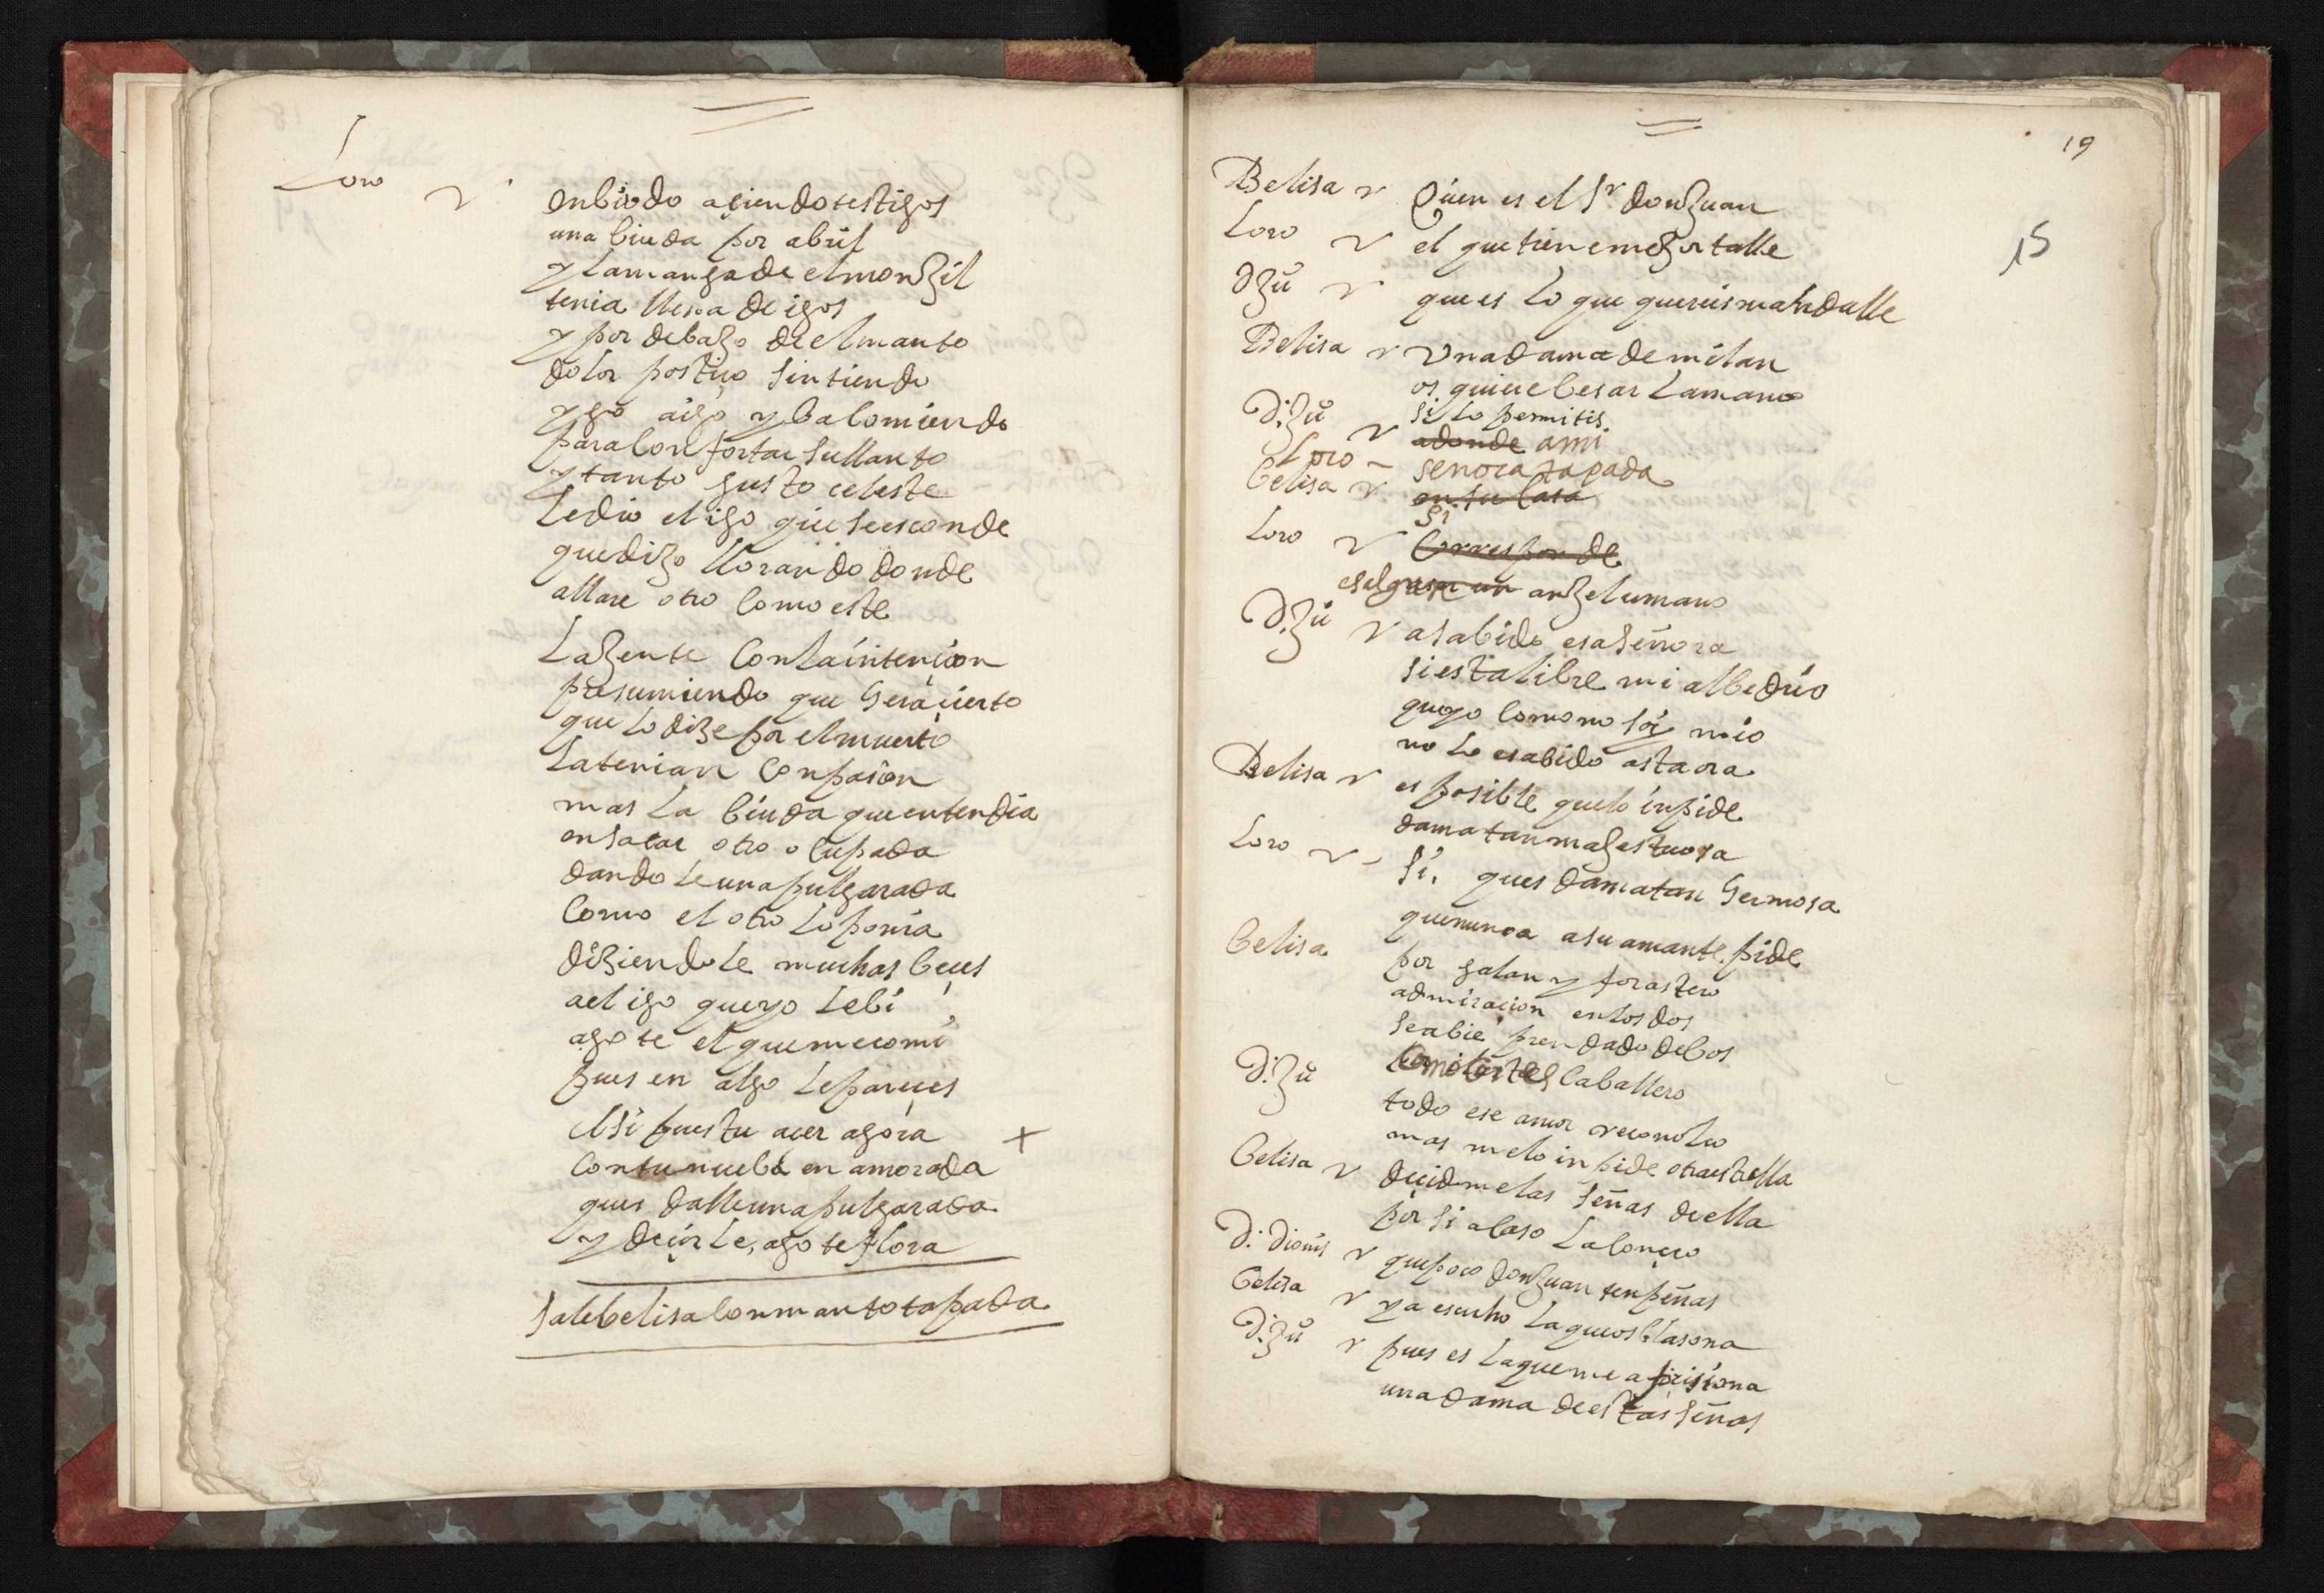 Loro
enbiudo açiendo testigos
una biuda por abril
y la manga de el mongil
tenia llena de igos
y por debago de el manto
dolor postiço sintiendo
y balomiendo
para confortar su llanto
y tanto gusto celeste
le dio el igo que se esconde
que digo llorando donde
allare otro como este
la gente con la intençion
presumiendo que sera çierto
que lo dize por el muerto
la tenian conpasion
mas la biuda que entendia
en sacar otro ocupada
dandole una pulgarada
como el otro lo ponia
diziendole muchas beçes
a el igo que yo le bi
agote el que me comi
pues en algo le pareçes
asi puestu açer agora
con tu nueba enamorada
ques dalle una pulgarada
y deçirle, agote flora
sale belisa con manto tapada
19
15
Belisa Quien es el Sr don Juan
Loro el que tiene megor talle
D Ju que es lo que quereis mandalle
Belisa Una dama de milan
os quiere besar la mano
si lo permitis
D. Ju adonde ami
Loro - senora tapada
belisa en su casa
si
Loro Corresponde
es el angel umano
D. Ju a sabido esa señora
si esta libre mi albedrio
que yo como no soi mio
no lo e sabido asta ora
Belisa es posible que lo inpide
dama tan magestuosa
Loro si. ques dama tan hermosa
que nunca a su amante pide
belisa por galan y forastero
admiracion en los dos
se abie prendado de bos
D. Ju caballero
todo ese amor reconozco
mas me lo inpide otra estrella
belisa deçidme las señas de ella
por si acaso la conozco
D. Dionis que poco don Juan tenpeñas
belisa ya escucho la que os blasona
D. Ju pues es la que me aprisiona
una dama de estas señas